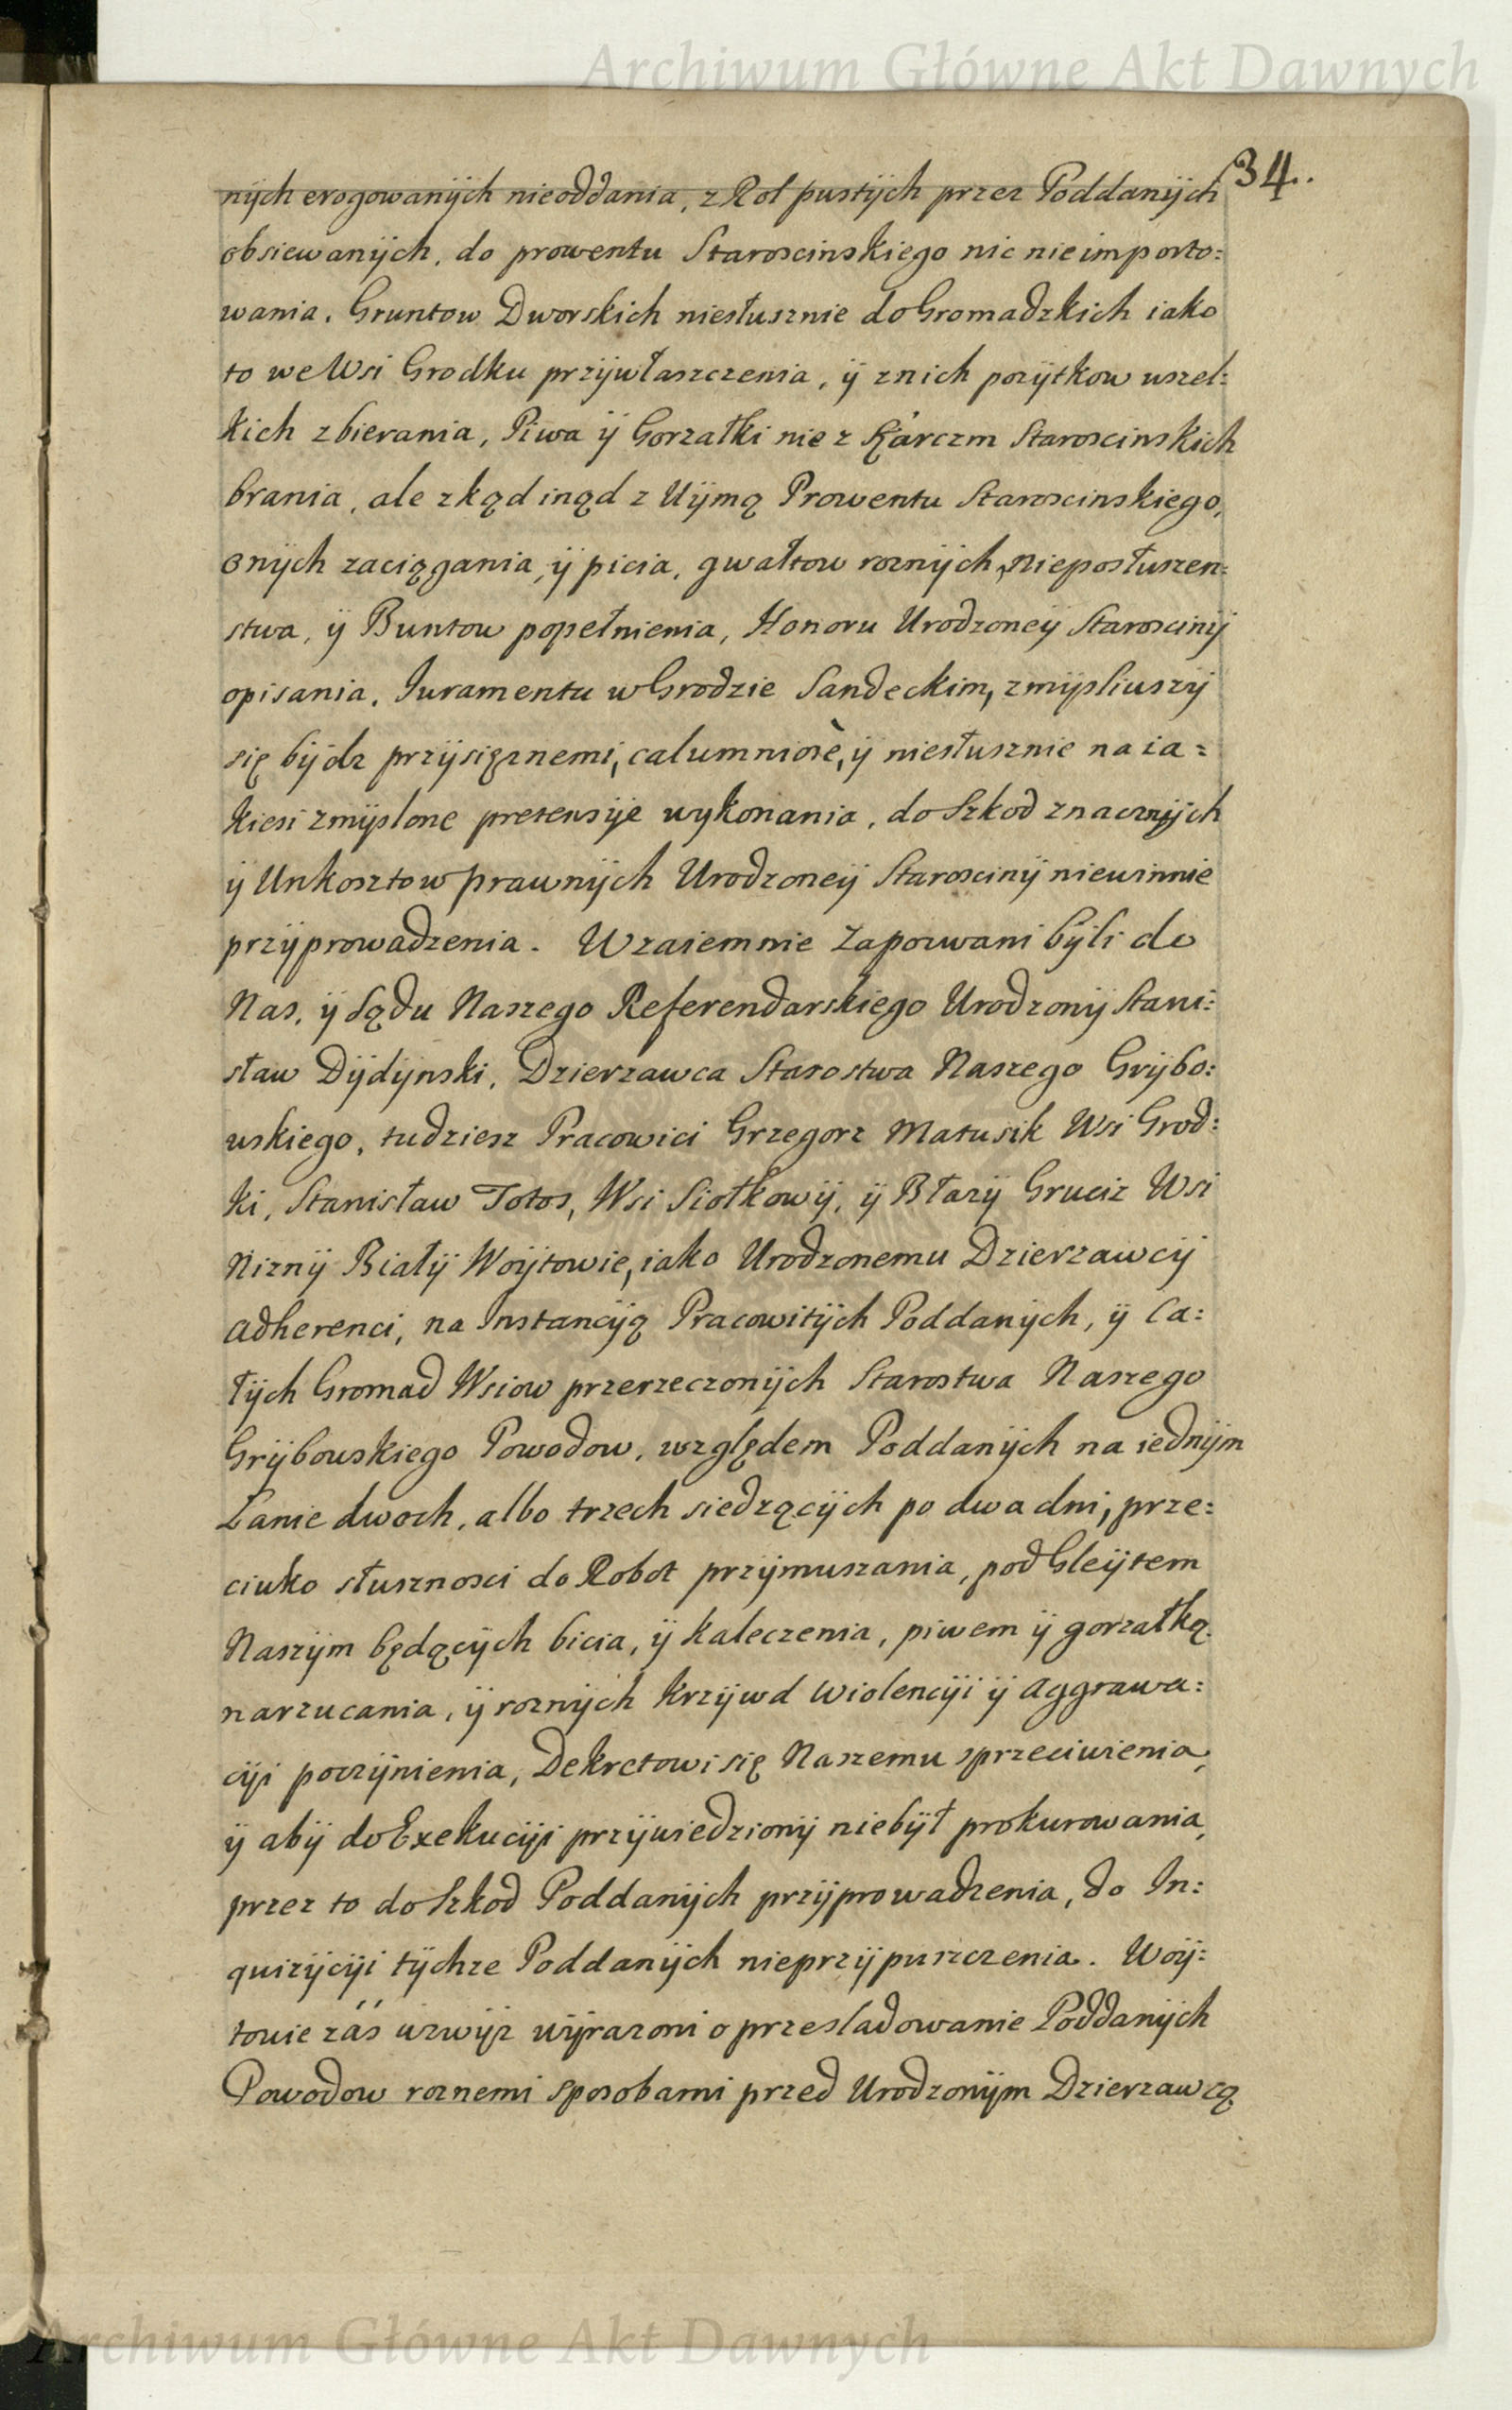 Archiwum Główne Akt Dawnych
34.
nÿch erogowanÿch nieoddania, z Rol pustÿch przez Poddanÿch
obsiewanÿch, do prowentu Staroscinskiego nic nie importo:
wania. Gruntow Dworskich niesłusznie do Gromadzkich iako
to we Wsi Grodku przÿwłaszczenia, ÿ z nich pozÿtkow wszel:
kich zbierania, Piwa ÿ Gorzałki nie z Karczm Staroscinskich
brania, ale zkąd inąd z Uÿmą Prowentu Staroscinskiego,
onÿch zaciągania, ÿ picia, gwałtow roznÿch, nieposłuszen:
stwa, ÿ Buntow popełnienia, Honoru Urodzoneÿ Staroscinÿ
opisania. Juramentu w Grodzie Sandeckim, zmÿsliwszÿ
się bÿdz przÿsięznemi, calumniosè, ÿ niesłusznie na ia=
kiesi zmÿslone pretensÿe wykonania, do Szkod znacznÿch
ÿ Unkosztow prawnÿch Urodzoneÿ Staroscinÿ niewinnie
przÿprowadzenia. Wzaiemnie Zapozwani bÿli do
Nas, ÿ Sądu Naszego Referendarskiego Urodzonÿ Stani:
sław Dÿdÿnski, Dzierzawca Starostwa Naszego Grÿbo:
wskiego, tudziesz Pracowici Grzegorz Matusik Wsi Grod:
ki, Stanisław Totos, Wsi Siołkowÿ, ÿ Błazÿ Gruciz Wsi
Niznÿ Białÿ Woÿtowie, iako Urodzonemu Dzierzawcÿ
adherenci, na Instancÿą Pracowitÿch Poddanÿch, ÿ Ca:
łÿch Gromad Wsiow przerzeczonÿch Starostwa Naszego
Grÿbowskiego Powodow, względem Poddanÿch na iednÿm
Łanie dwoch, albo trzech siedzącÿch po dwa dni, prze:
ciwko słusznosci do Robot przÿmuszania, pod Gleÿtem
Naszÿm będącÿch bicia, ÿ kaleczenia, piwem ÿ gorzałką
narzucania, ÿ roznÿch krzÿwd wiolencÿi ÿ aggrawa:
cÿi poczÿnienia, Dekretowi się Naszemu sprzeciwienia,
ÿ abÿ do Exekucÿi przÿwiedzionÿ niebÿł prokurowania,
przez to do Szkod Poddanÿch przÿprowadzenia, do In:
quizÿcÿi tÿchze Poddanÿch nieprzÿpuszczenia. Woÿ:
towie záś wzwÿz wÿrazoni o przesladowanie Poddanÿch
Powodow roznemi sposobami przed Urodzonÿm Dzierzawcą
Archiwum Główne Akt Dawnych